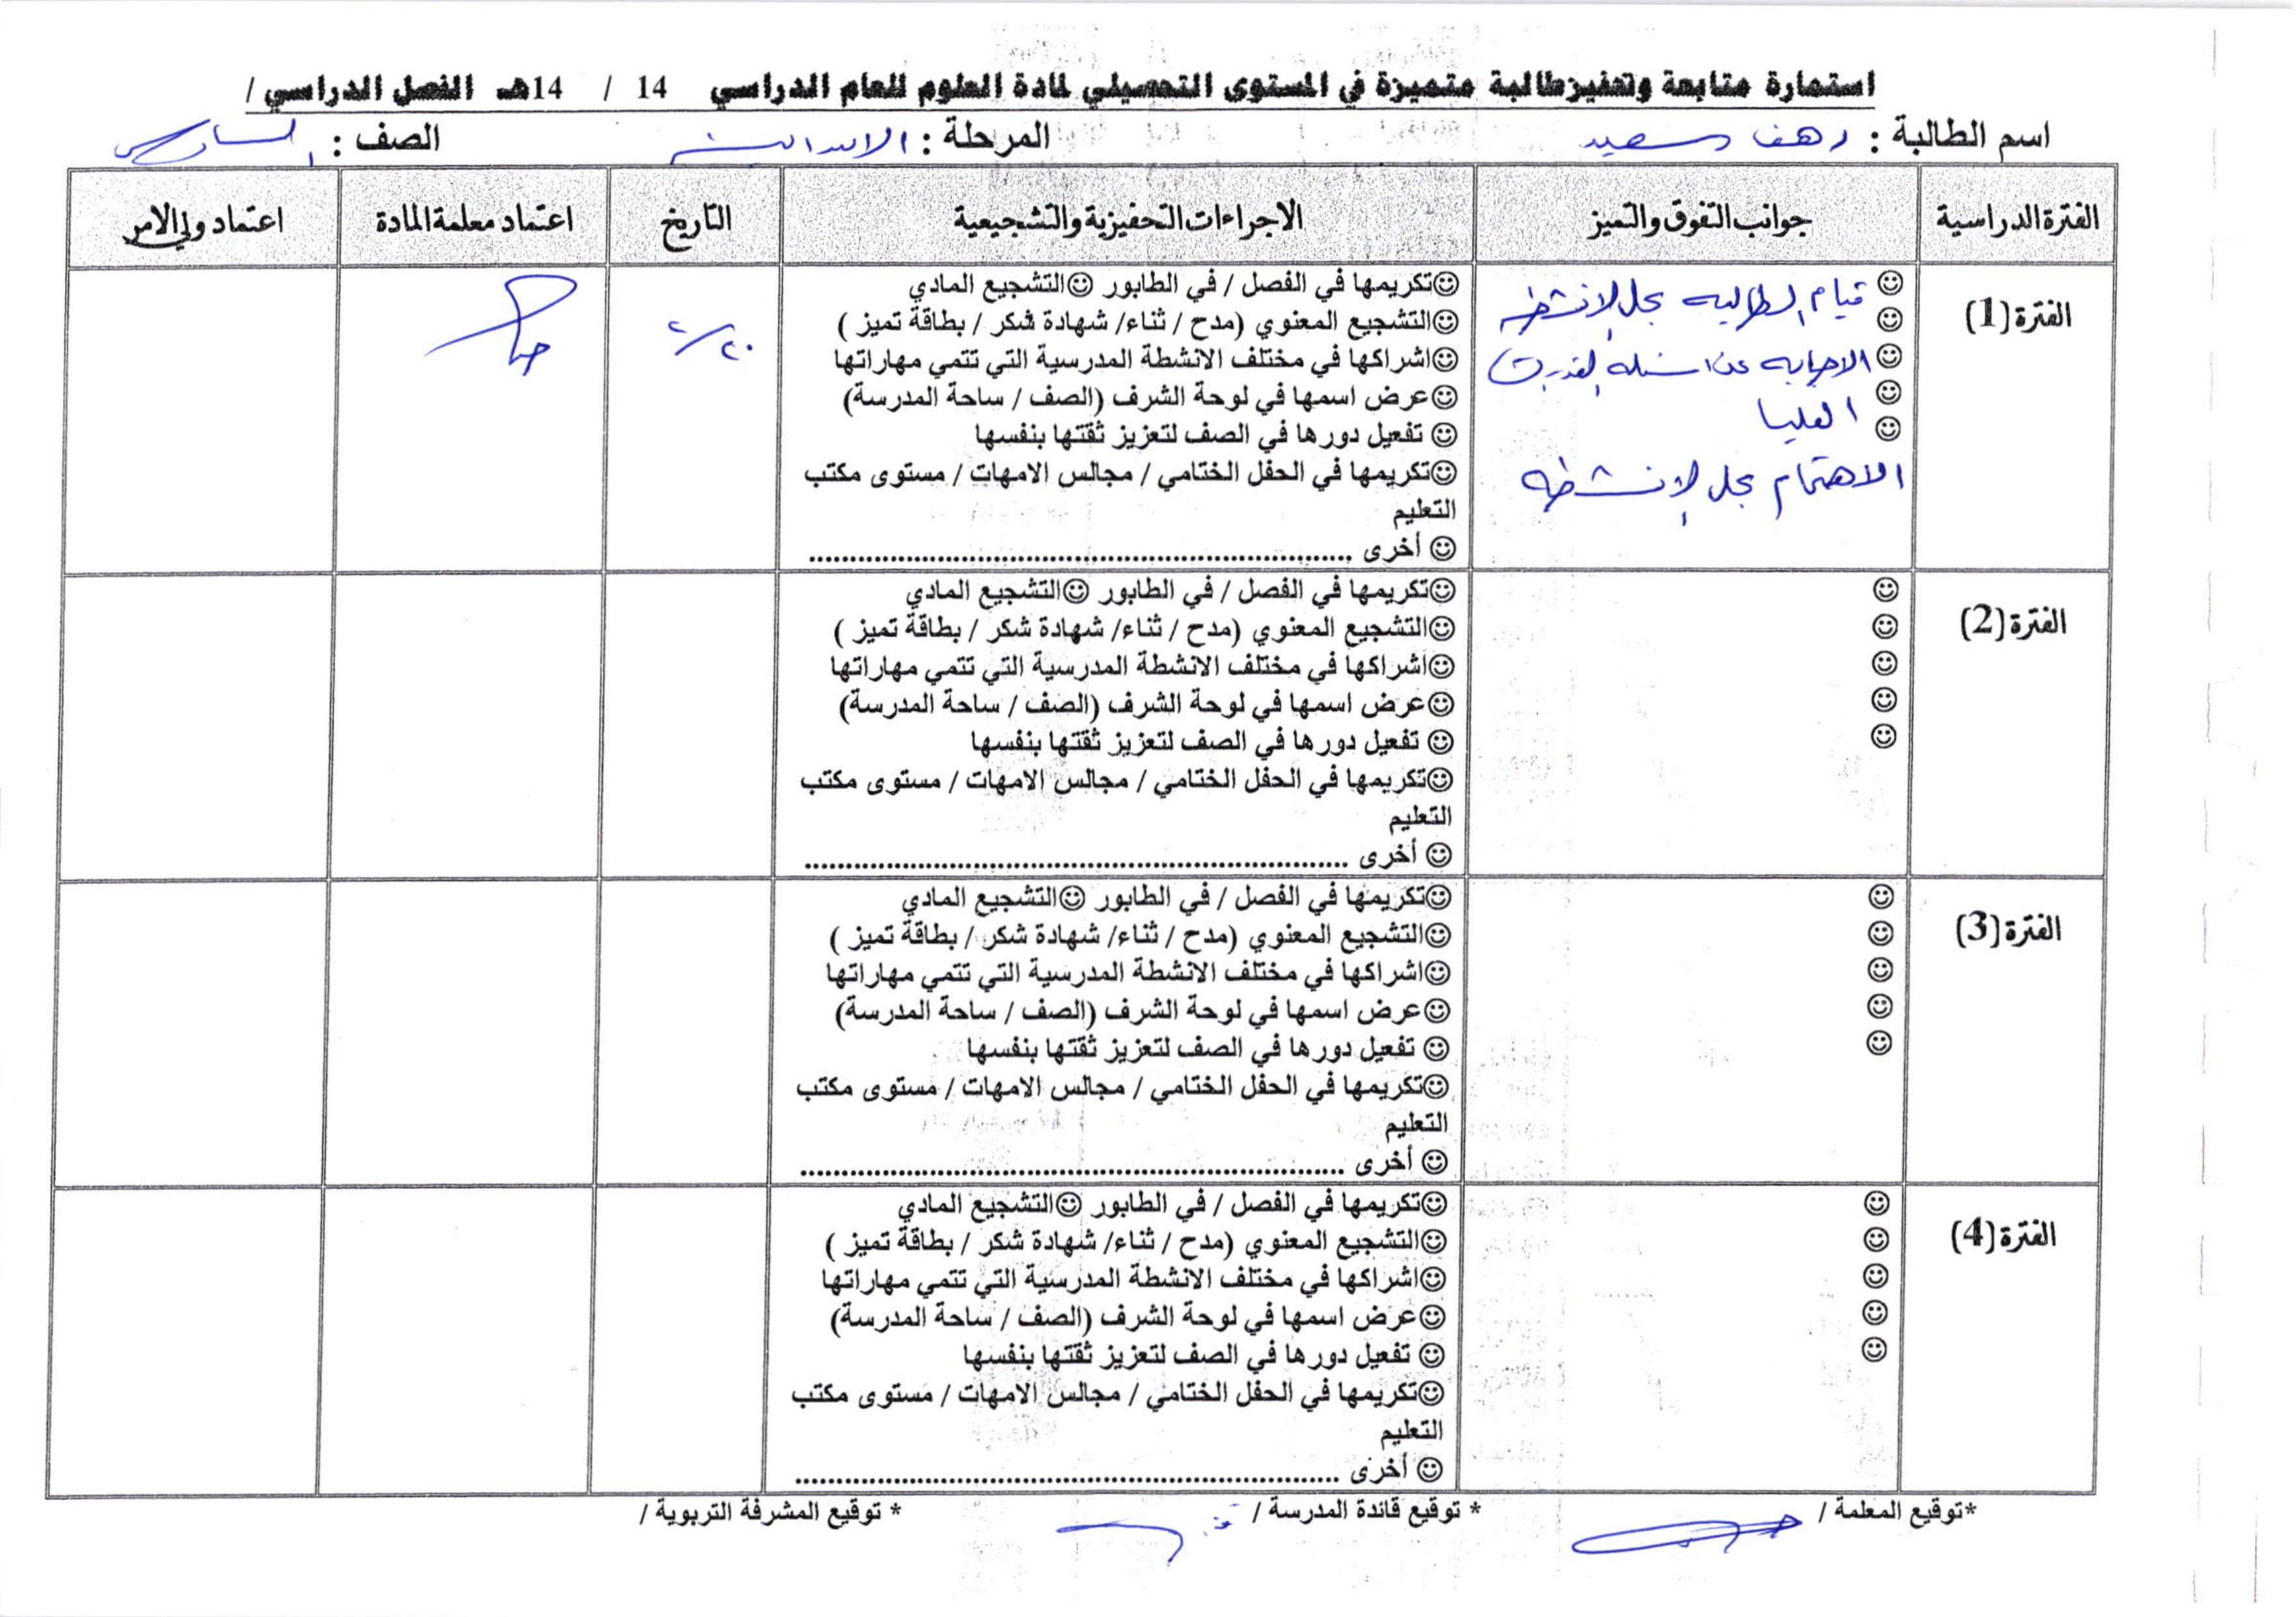 استمارة متابعة وتحفيز طالبة متميزة في المستوى التحصيلي لمادة العلوم للعام الدراسي 14 / 14هـ الفصل الدراسي /
اسم الطالبة : رهف سعيد المرحلة : الابتدائية الصف : السادس
الفترة الدراسية جوانب التفوق والتميز الاجراءات التحفيزية والتشجيعية التاريخ اعتماد معلمة المادة اعتماد ولي الامر
الفترة (1)
☺ قيام الطالبه بحل الانشطه
☺
☺ الاجابه عن اسئله القدرات
☺ العليا
☺
الاهتمام بحل الانشطه
☺تكريمها في الفصل / في الطابور ☺التشجيع المادي
☺التشجيع المعنوي (مدح / ثناء/ شهادة شكر / بطاقة تميز )
☺اشراكها في مختلف الانشطة المدرسية التي تتمي مهاراتها
☺عرض اسمها في لوحة الشرف (الصف / ساحة المدرسة)
☺ تفعيل دورها في الصف لتعزيز ثقتها بنفسها
☺تكريمها في الحفل الختامي / مجالس الامهات / مستوى مكتب
التعليم
☺ أخرى ................................................................
الفترة (2)
☺
☺
☺
☺
☺
☺تكريمها في الفصل / في الطابور ☺التشجيع المادي
☺التشجيع المعنوي (مدح / ثناء/ شهادة شكر / بطاقة تميز )
☺اشراكها في مختلف الانشطة المدرسية التي تتمي مهاراتها
☺عرض اسمها في لوحة الشرف (الصف / ساحة المدرسة)
☺ تفعيل دورها في الصف لتعزيز ثقتها بنفسها
☺تكريمها في الحفل الختامي / مجالس الامهات / مستوى مكتب
التعليم
☺ أخرى ................................................................
الفترة (3)
☺
☺
☺
☺
☺
☺تكريمها في الفصل / في الطابور ☺التشجيع المادي
☺التشجيع المعنوي (مدح / ثناء/ شهادة شكر / بطاقة تميز )
☺اشراكها في مختلف الانشطة المدرسية التي تتمي مهاراتها
☺عرض اسمها في لوحة الشرف (الصف / ساحة المدرسة)
☺ تفعيل دورها في الصف لتعزيز ثقتها بنفسها
☺تكريمها في الحفل الختامي / مجالس الامهات / مستوى مكتب
التعليم
☺ أخرى ................................................................
الفترة (4)
☺
☺
☺
☺
☺
☺تكريمها في الفصل / في الطابور ☺التشجيع المادي
☺التشجيع المعنوي (مدح / ثناء/ شهادة شكر / بطاقة تميز )
☺اشراكها في مختلف الانشطة المدرسية التي تتمي مهاراتها
☺عرض اسمها في لوحة الشرف (الصف / ساحة المدرسة)
☺ تفعيل دورها في الصف لتعزيز ثقتها بنفسها
☺تكريمها في الحفل الختامي / مجالس الامهات / مستوى مكتب
التعليم
☺ أخرى ................................................................
*توقيع المعلمة / * توقيع قائدة المدرسة / * توقيع المشرفة التربوية /